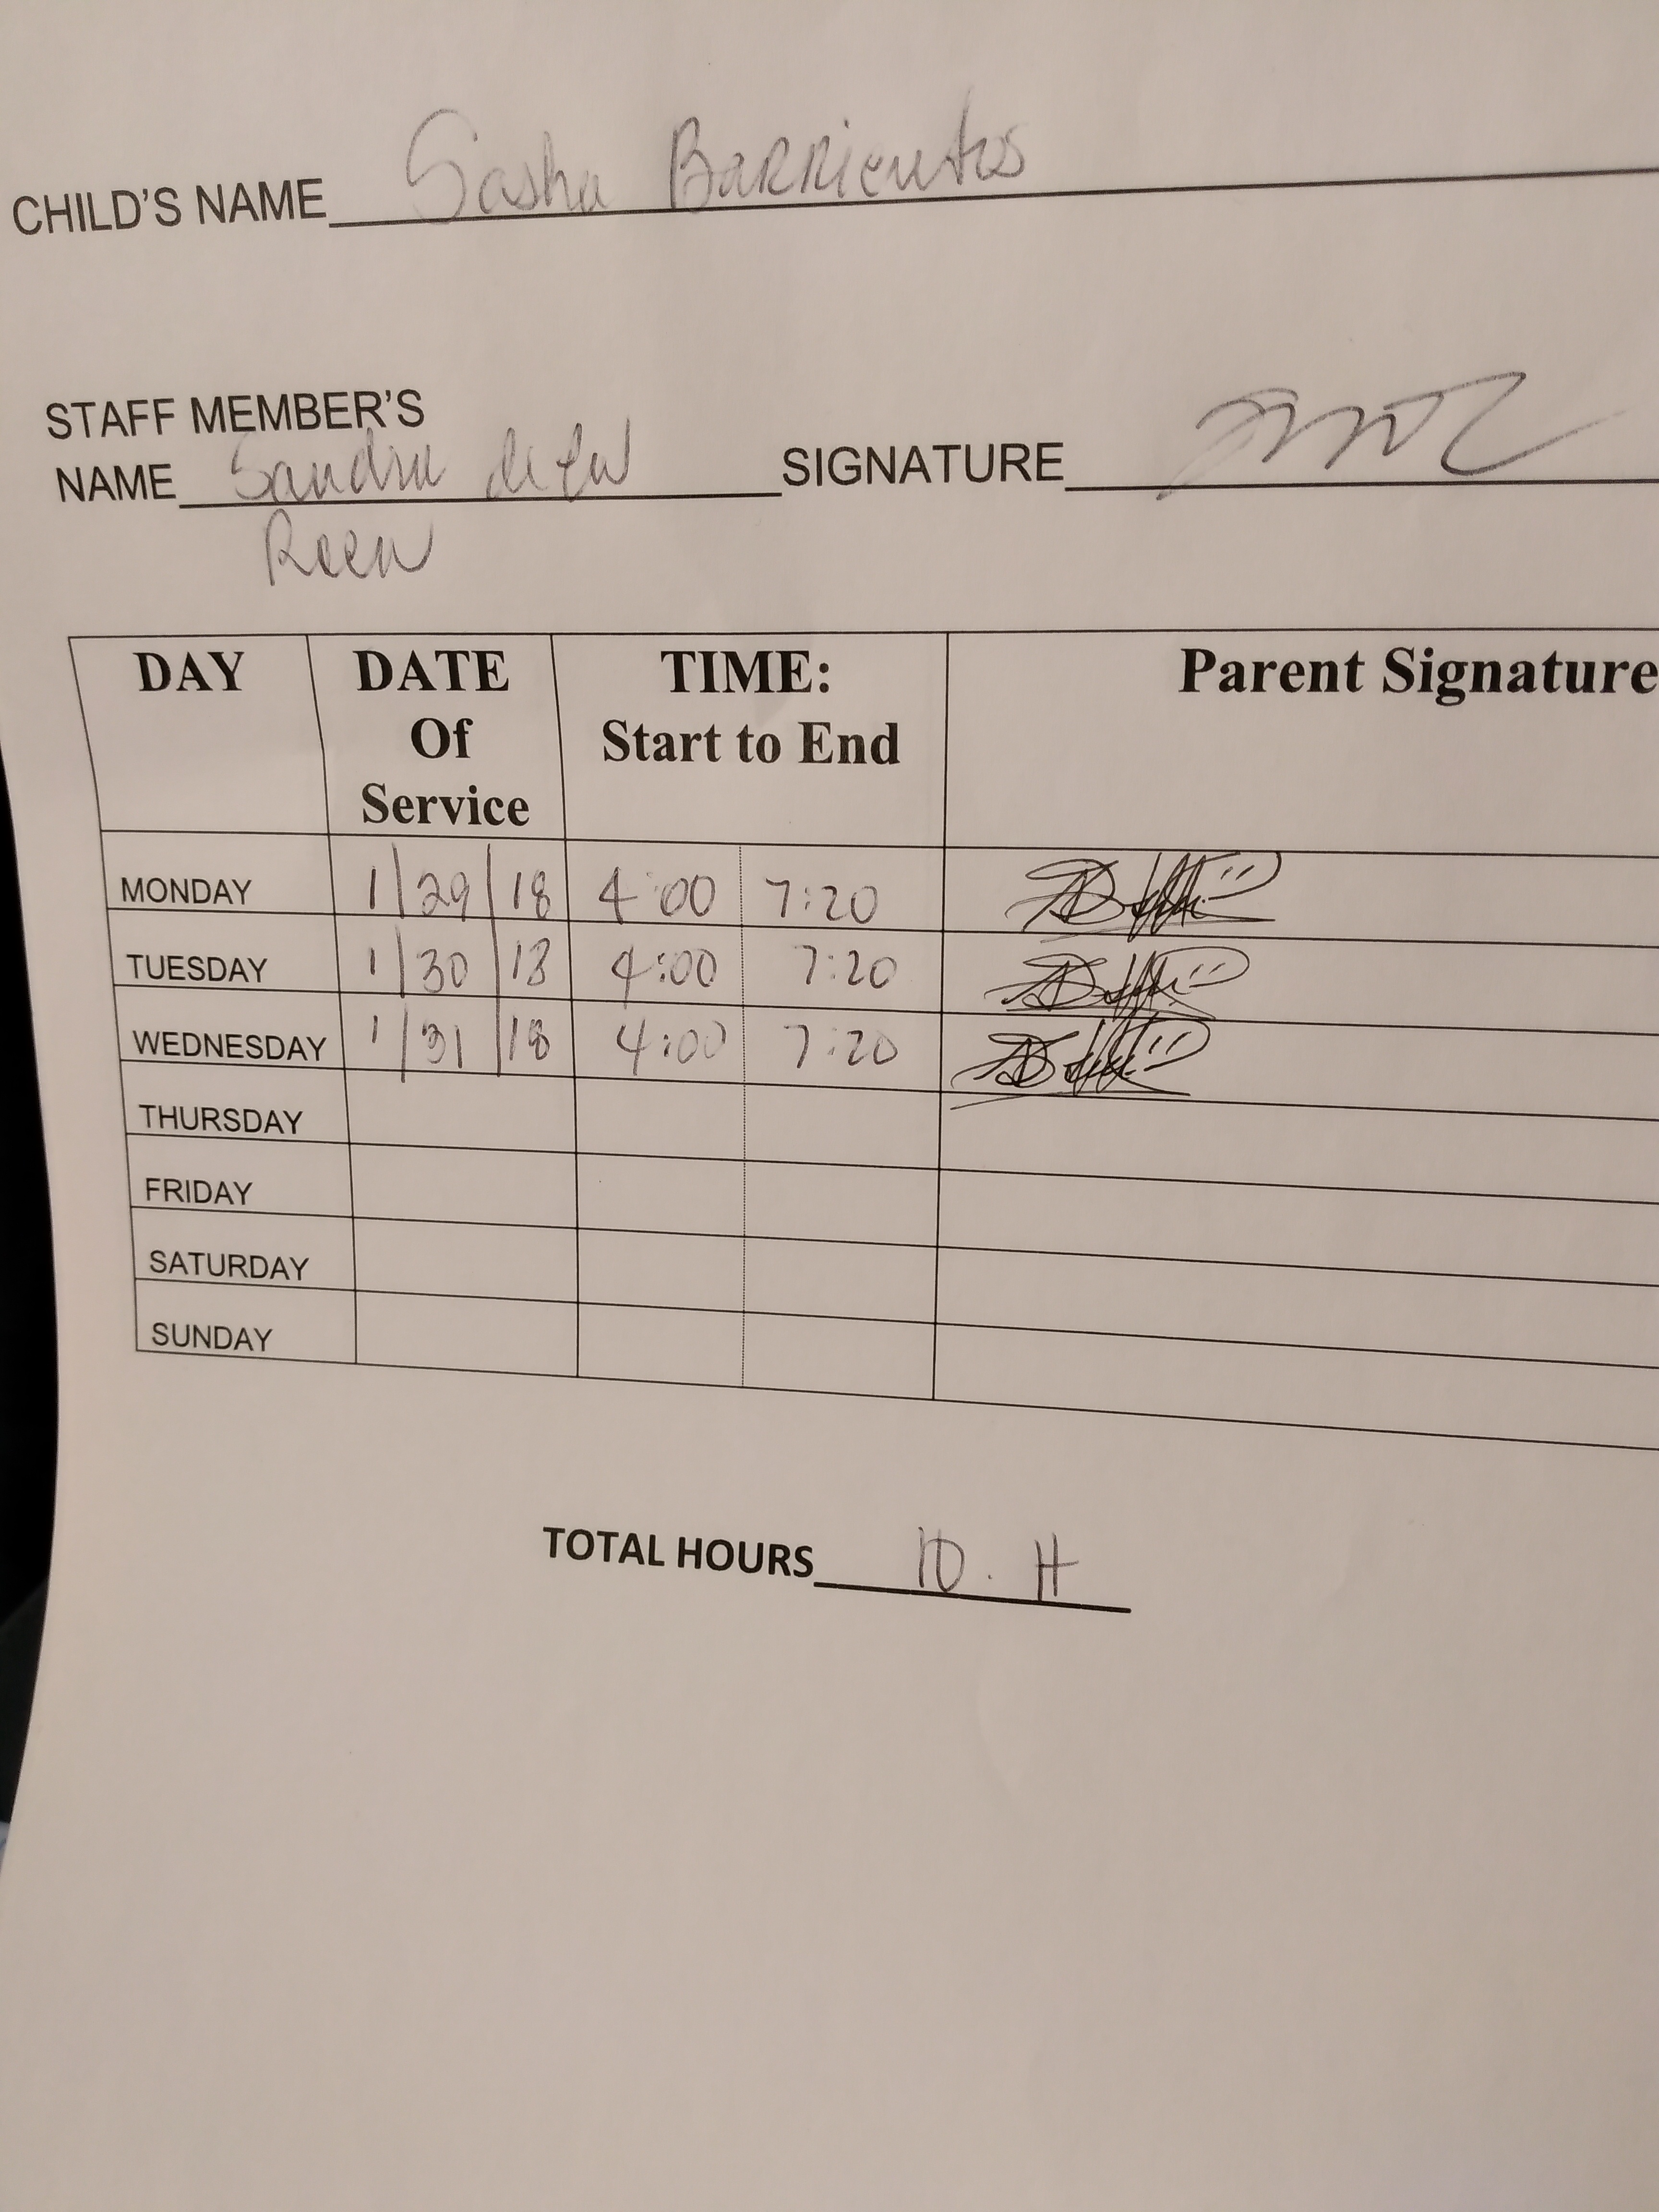 CHILD'S NAME Sasha Barrientos
STAFF MEMBER'S
NAME Sandra de la SIGNATURE
DAY DATE Of Service TIME: Start to End Parent Signature
MONDAY 1/29/18 4:00 7:20
TUESDAY 1/30/18 4:00 7:20
WEDNESDAY 1/31/18 4:00 7:20
THURSDAY
FRIDAY
SATURDAY
SUNDAY
TOTAL HOURS 10. H